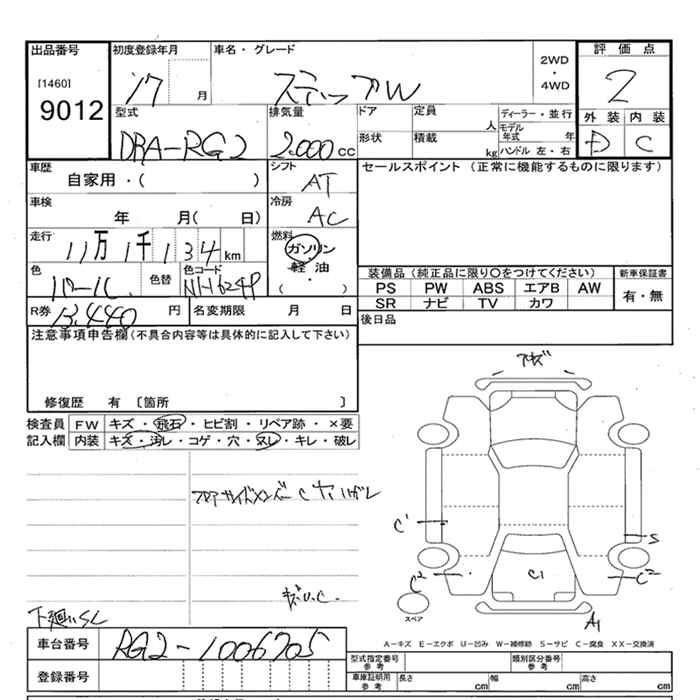 出品番号 初度登録年月 車名・グレード 2WD・4WD 評価点
[1460] 9012 17 月 ステップW 2
外装 内装
D C
型式 排気量 ドア 定員 人 ディーラー・並行
DBA-RG2 2000cc 形状 積載 kg モデル年式 年
ハンドル 左・右
車歴 シフト セールスポイント(正常に機能するものに限ります)
自家用・( ) AT
車検 冷房
年 月( 日) AC
走行 燃料
11万1千134km ガソリン・軽油・( )
色 色替 色コード 装備品(純正品に限り〇をつけてください) 新車保証書
パール NH624P PS PW ABS エアB AW 有・無
SR ナビ TV カワ
R券 円 名変期限 月 日 後日品
13,440
注意事項申告欄(不具合内容等は具体的に記入して下さい)
修復歴 有 〔箇所 〕
検査員 FW キズ・飛石・ヒビ割・リペア跡・×要
記入欄 内装 キズ・汚レ・コゲ・穴・ヌレ・キレ・破レ
C1
S
C2
C2
C1
A1
スペア
A-キズ E-エクボ U-凹み W-補修跡 S-サビ C-腐食 XX-交換済
車台番号 RG2-1006705
型式指定番号 参考 類別区分番号 参考
登録番号 車庫証明用 参考 長さ cm 幅 cm 高さ cm